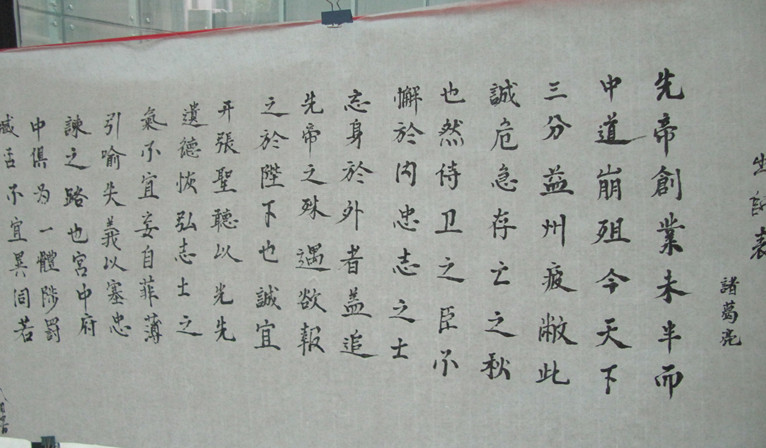 出師表
諸葛亮
先帝創業未半而
中道崩殂今天下
三分益州疲敝此
誠危急存亡之秋
也然待卫之臣不
懈於内忠志之士
忘身於外者盖追
先帝之殊遇欲報
之於陛下也誠宜
开張聖聽以光先
遺德恢弘志士之
氣不宜妄自菲薄
引喻失義以塞忠
諫之路也宮中府
中俱为一體陟罰
臧否不宜異同若